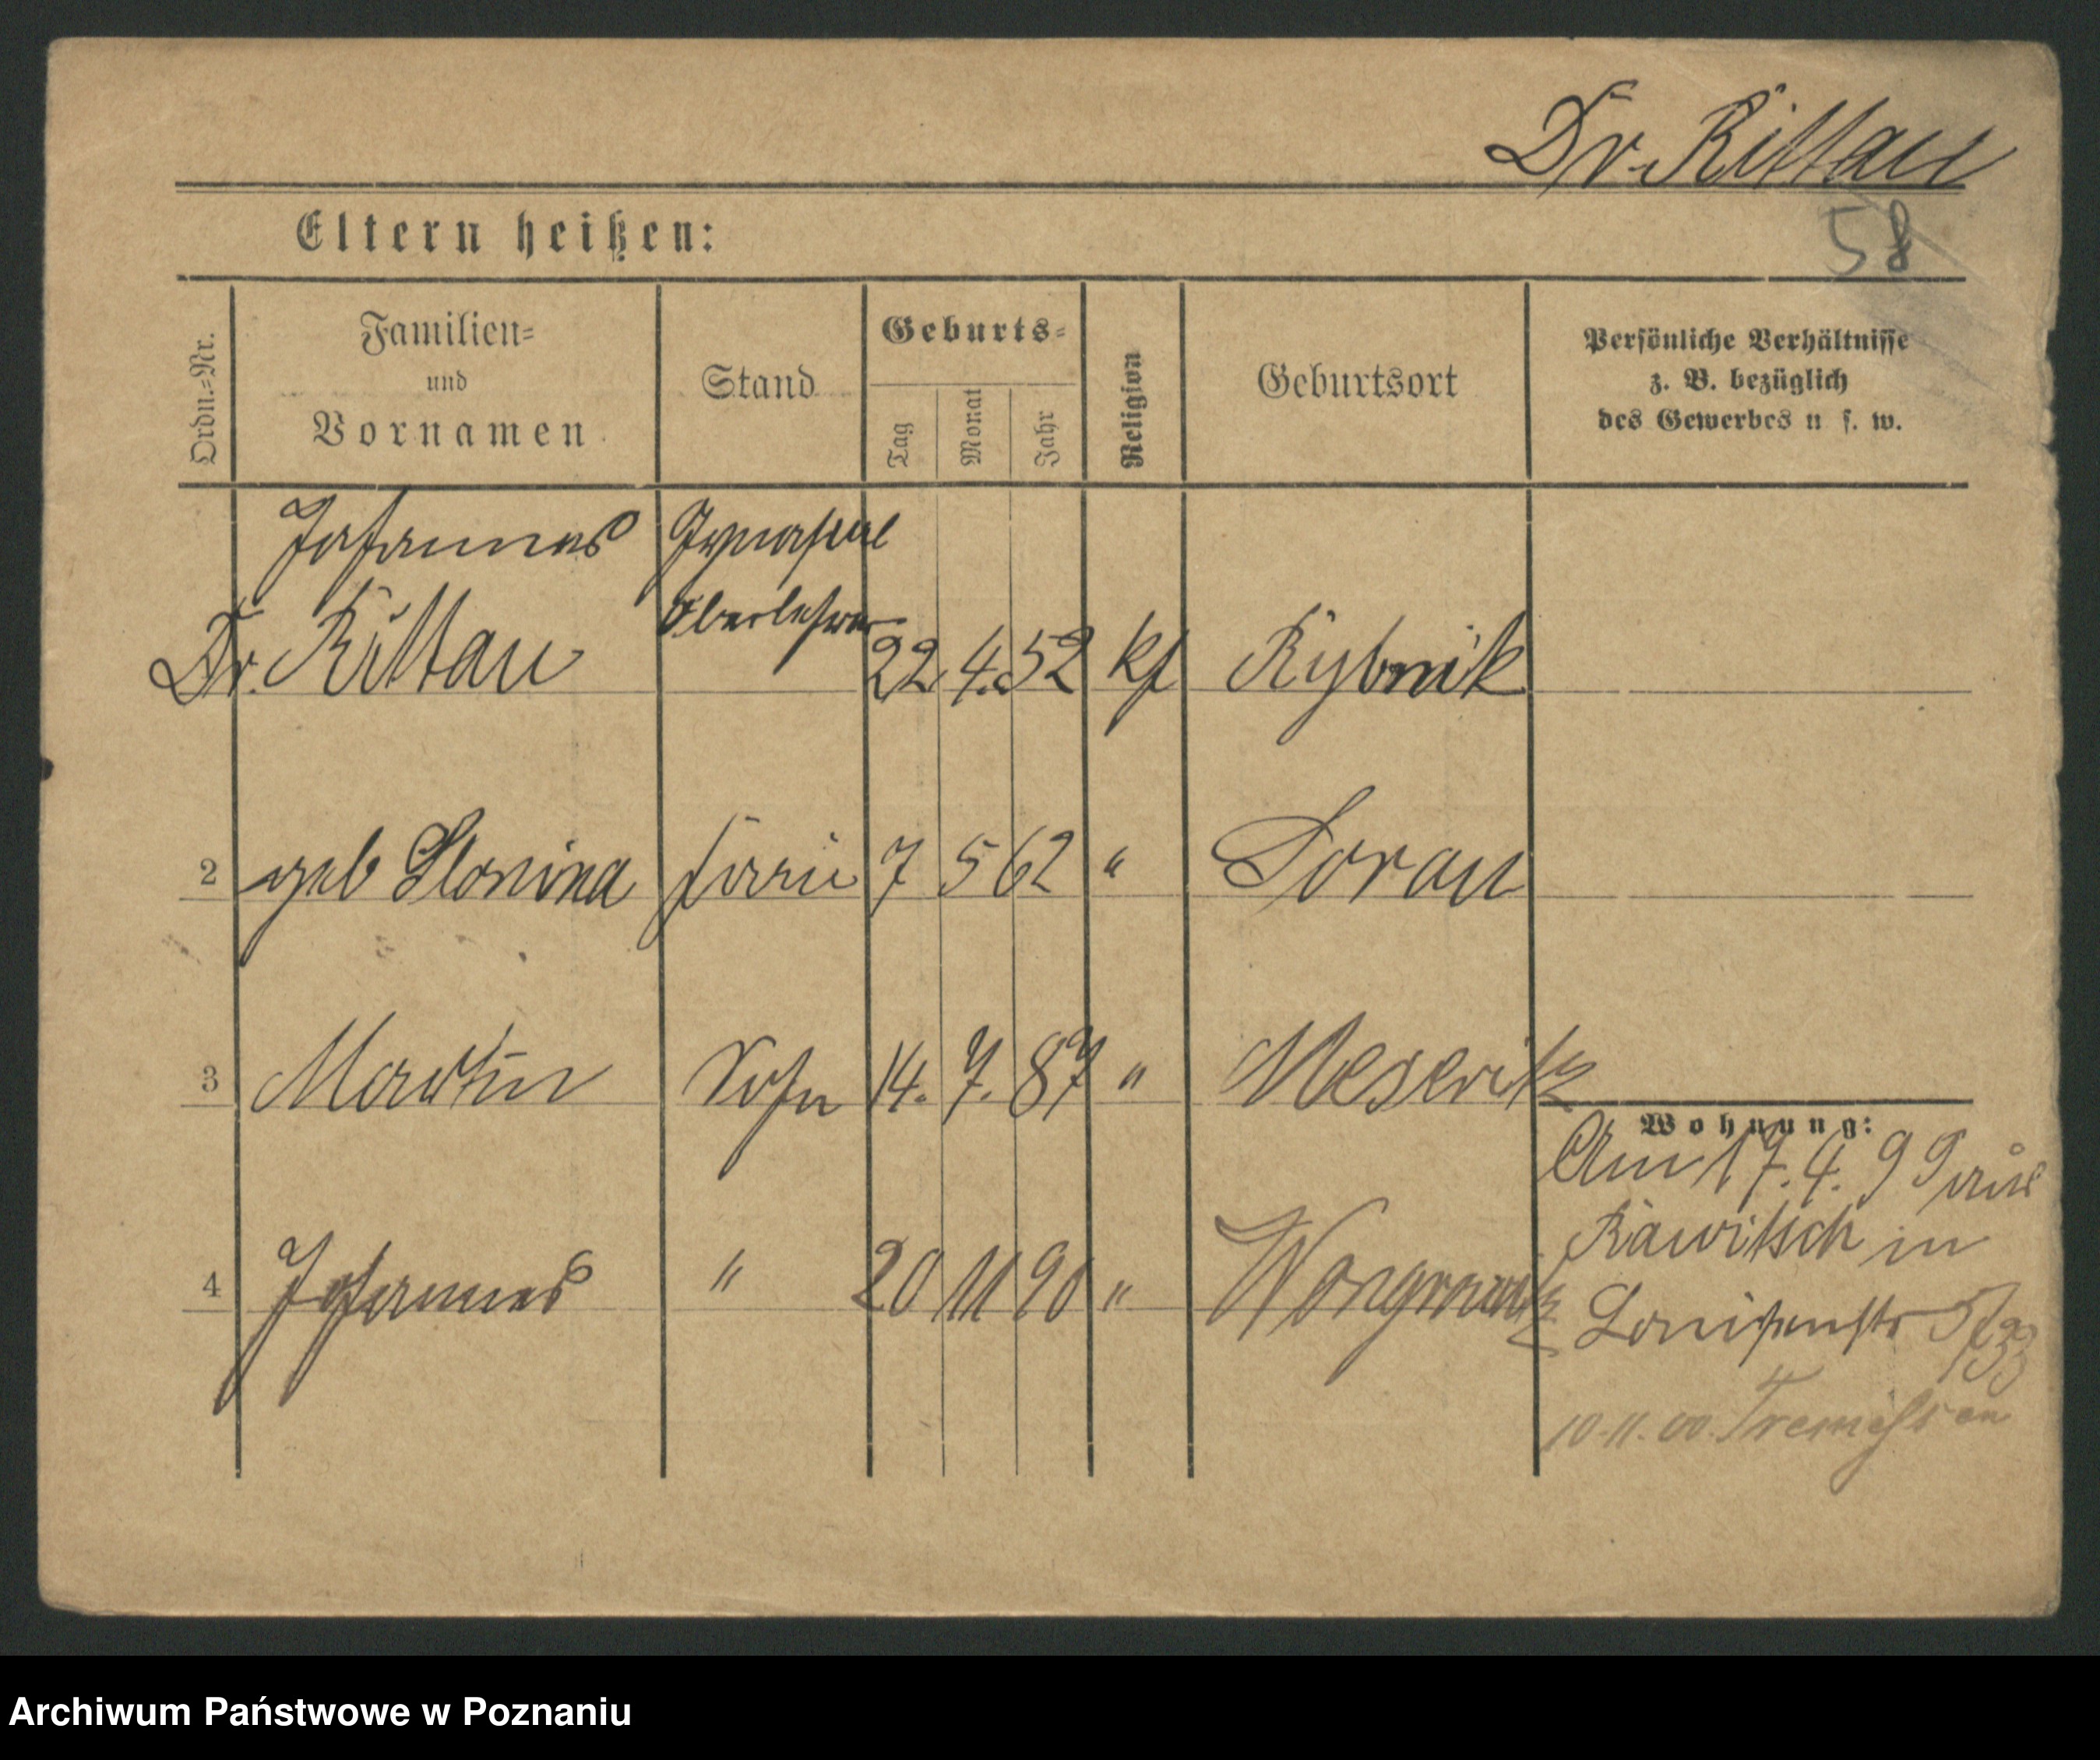 Dr. Rittau
58
Eltern heißen:
Ordn.-Nr.
Familien-
und
Vornamen
Stand
Geburts-
Tag
Monat
Jahr
Religion
Geburtsort
Persönliche Verhältnisse
z. B. bezüglich
des Gewerbes u s. w.
Johannes Gymnasial
Oberlehrer
Dr. Rittau 22 4. 52 kf Rybnik
2 geb Slonina Frau 7 5 62 " Sorau
3 Martin Sohn 14. 7. 87 " Meseritz
Wohnung:
Am 17. 4. 99 aus
Rawitsch in
4 Johannes " 20 11 90 " Wongrowitz
Louisenstr
10.11.00. Tremessen
Archiwum Państwowe w Poznaniu